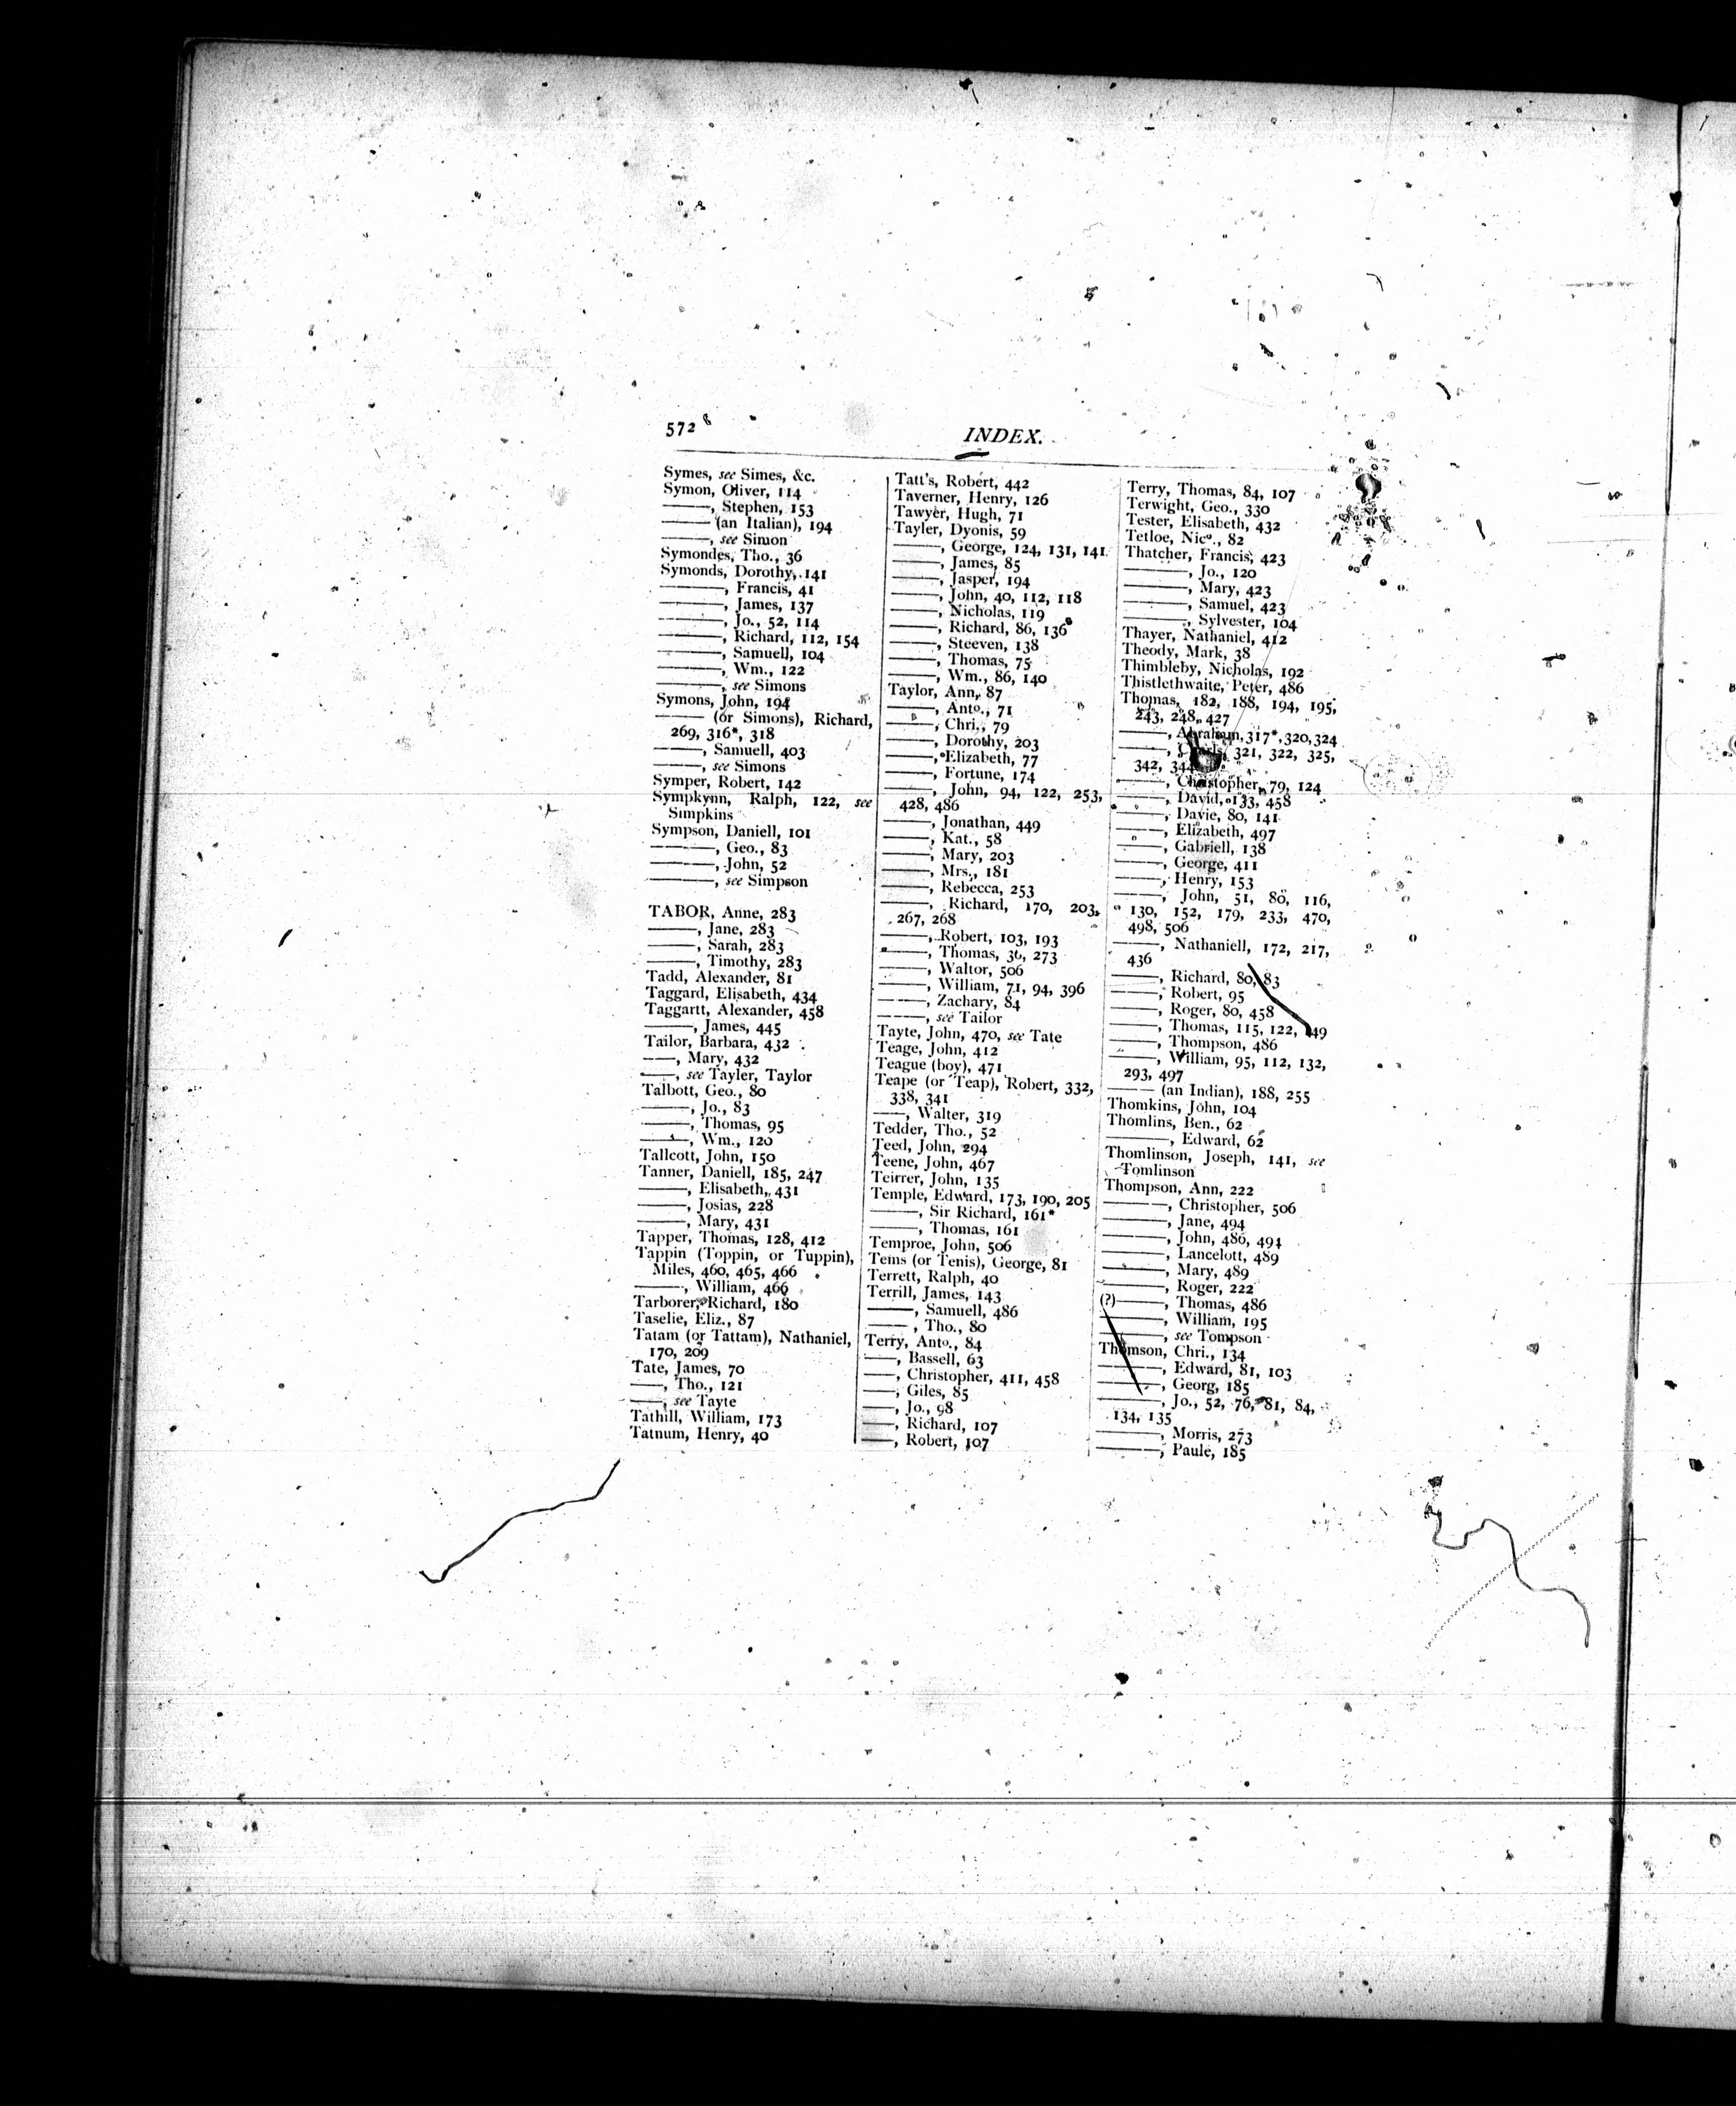 572
INDEX.
Symes, see Simes, &c.
Symon, Oliver, 114
——, Stephen, 153
—— (an Italian), 194
——, see Simon
Symondes, Tho., 36
Symonds, Dorothy, 141
——, Francis, 41
——, James, 137
——, Jo., 52, 114
——, Richard, 112, 154
——, Samuell, 104
——, Wm., 122
——, see Simons
Symons, John, 194
—— (or Simons), Richard,
269, 316*, 318
——, Samuell, 403
——, see Simons
Symper, Robert, 142
Sympkynn, Ralph, 122, see
Simpkins
Sympson, Daniell, 101
——, Geo., 83
——, John, 52
——, see Simpson
TABOR, Anne, 283
——, Jane, 283
——, Sarah, 283
——, Timothy, 283
Tadd, Alexander, 81
Taggard, Elisabeth, 434
Taggartt, Alexander, 458
——, James, 445
Tailor, Barbara, 432
——, Mary, 432
——, see Tayler, Taylor
Talbott, Geo., 80
——, Jo., 83
——, Thomas, 95
——, Wm., 120
Tallcott, John, 150
Tanner, Daniell, 185, 247
——, Elisabeth, 431
——, Josias, 228
——, Mary, 431
Tapper, Thomas, 128, 412
Tappin (Toppin, or Tuppin),
Miles, 460, 465, 466
——, William, 466
Tarborer, Richard, 180
Taselie, Eliz., 87
Tatam (or Tattam), Nathaniel,
170, 209
Tate, James, 70
——, Tho., 121
——, see Tayte
Tathill, William, 173
Tatnum, Henry, 40
Tatt's, Robert, 442
Taverner, Henry, 126
Tawyer, Hugh, 71
Tayler, Dyonis, 59
——, George, 124, 131, 141
——, James, 85
——, Jasper, 194
——, John, 40, 112, 118
——, Nicholas, 119
——, Richard, 86, 136
——, Steeven, 138
——, Thomas, 75
——, Wm., 86, 140
Taylor, Ann, 87
——, Anto., 71
——, Chri., 79
——, Dorothy, 203
——, Elizabeth, 77
——, Fortune, 174
——, John, 94, 122, 253,
428, 486
——, Jonathan, 449
——, Kat., 58
——, Mary, 203
——, Mrs., 181
——, Rebecca, 253
——, Richard, 170, 203,
267, 268
——, Robert, 103, 193
——, Thomas, 36, 273
——, Waltor, 506
——, William, 71, 94, 396
——, Zachary, 84
——, see Tailor
Tayte, John, 470, see Tate
Teage, John, 412
Teague (boy), 471
Teape (or Teap), Robert, 332,
338, 341
——, Walter, 319
Tedder, Tho., 52
Teed, John, 294
Teene, John, 467
Teirrer, John, 135
Temple, Edward, 173, 190, 205
——, Sir Richard, 161*
——, Thomas, 161
Temproe, John, 506
Tems (or Tenis), George, 81
Terrett, Ralph, 40
Terrill, James, 143
——, Samuell, 486
——, Tho., 80
Terry, Anto., 84
——, Bassell, 63
——, Christopher, 411, 458
——, Giles, 85
——, Jo., 98
——, Richard, 107
——, Robert, 107
Terry, Thomas, 84, 107
Terwight, Geo., 330
Tester, Elisabeth, 432
Tetloe, Nico., 82
Thatcher, Francis, 423
——, Jo., 120
——, Mary, 423
——, Samuel, 423
——, Sylvester, 104
Thayer, Nathaniel, 412
Theody, Mark, 38
Thimbleby, Nicholas, 192
Thistlethwaite, Peter, 486
Thomas, 182, 188, 194, 195,
243, 248, 427
——, Abraham, 317*, 320, 324
——, 321, 322, 325,
342,
——, Christopher, 79, 124
——, David, 133, 458
——, Davie, 80, 141
——, Elizabeth, 497
——, Gabriell, 138
——, George, 411
——, Henry, 153
——, John, 51, 80, 116,
130, 152, 179, 233, 470,
498, 506
——, Nathaniell, 172, 217,
436
——, Richard, 80, 83
——, Robert, 95
——, Roger, 80, 458
——, Thomas, 115, 122,
——, Thompson, 486
——, William, 95, 112, 132,
293, 497
—— (an Indian), 188, 255
Thomkins, John, 104
Thomlins, Ben., 62
——, Edward, 62
Thomlinson, Joseph, 141, see
Tomlinson
Thompson, Ann, 222
——, Christopher, 506
——, Jane, 494
——, John, 486, 494
——, Lancelott, 489
——, Mary, 489
——, Roger, 222
(?)——, Thomas, 486
——, William, 195
——, see Tompson
Thomson, Chri., 134
——, Edward, 81, 103
——, Georg, 185
——, Jo., 52, 76, 81, 84,
134, 135
——, Morris, 273
——, Paule, 185